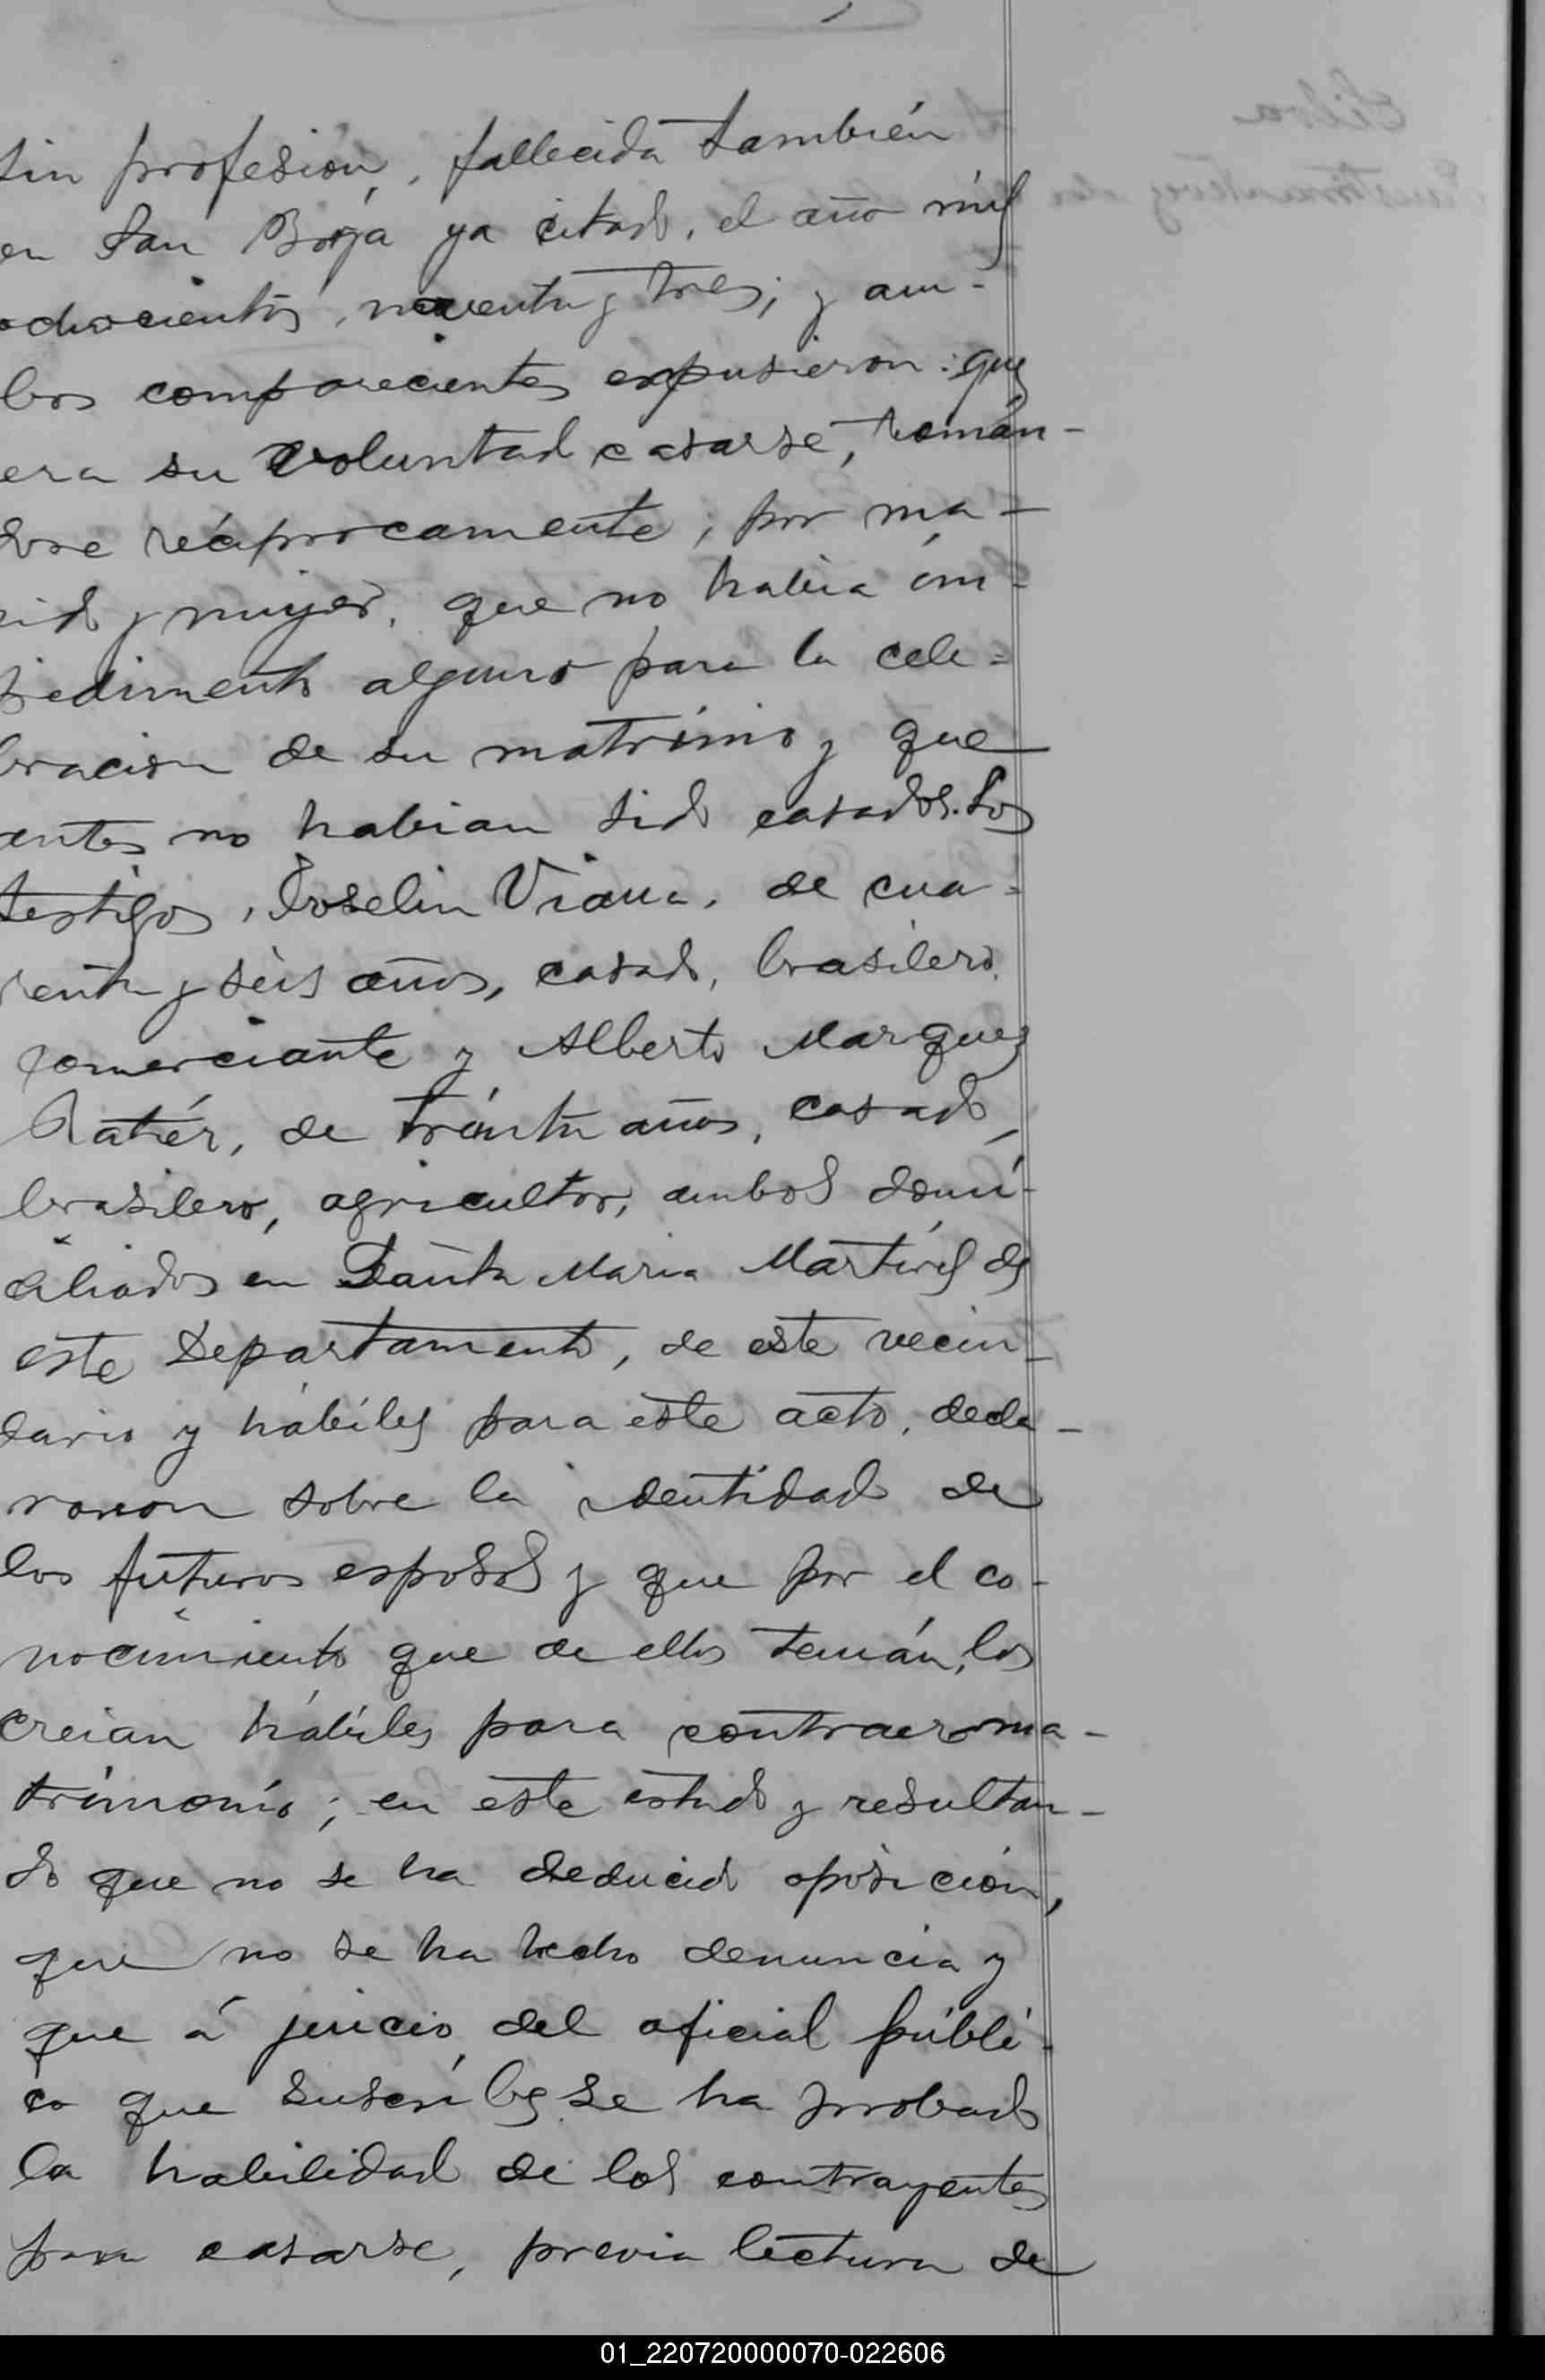 sin profesión, fallecida también
en San Borja ya citado, el año mil
ochocientos, noventa y tres; y am-
bos comparecientes expusieron: que
era su voluntad casarse, tomán-
dose recíprocamente, por ma-
rido y mujer, que no habia im-
pedimento alguno para la cele-
bracion de su matrimio y que
antes no habian sido casados. Los
testigos, Joselin Viana, de cua-
renta y seis años, casado, brasilero,
comerciante y Alberto Marques
Ratier, de treinta años, casado,
brasilero, agricultor, ambos domi-
ciliados en Santa Maria Martires de
este Departamento, de este vecin-
dario y hábiles para este acto, decla-
raron sobre la identidad de
los futuros esposos y que por el co-
nocimiento que de ellos tenián, los
creian hábiles para contraer ma-
trimonio; en este estado y resultan-
do que no se ha deducido oposición,
que no se ha hecho denuncia y
que á juicio del oficial públi-
co que suscribe se ha probado
la habilidad de los contrayentes
para casarse, previa lectura de
01_220720000070-022606